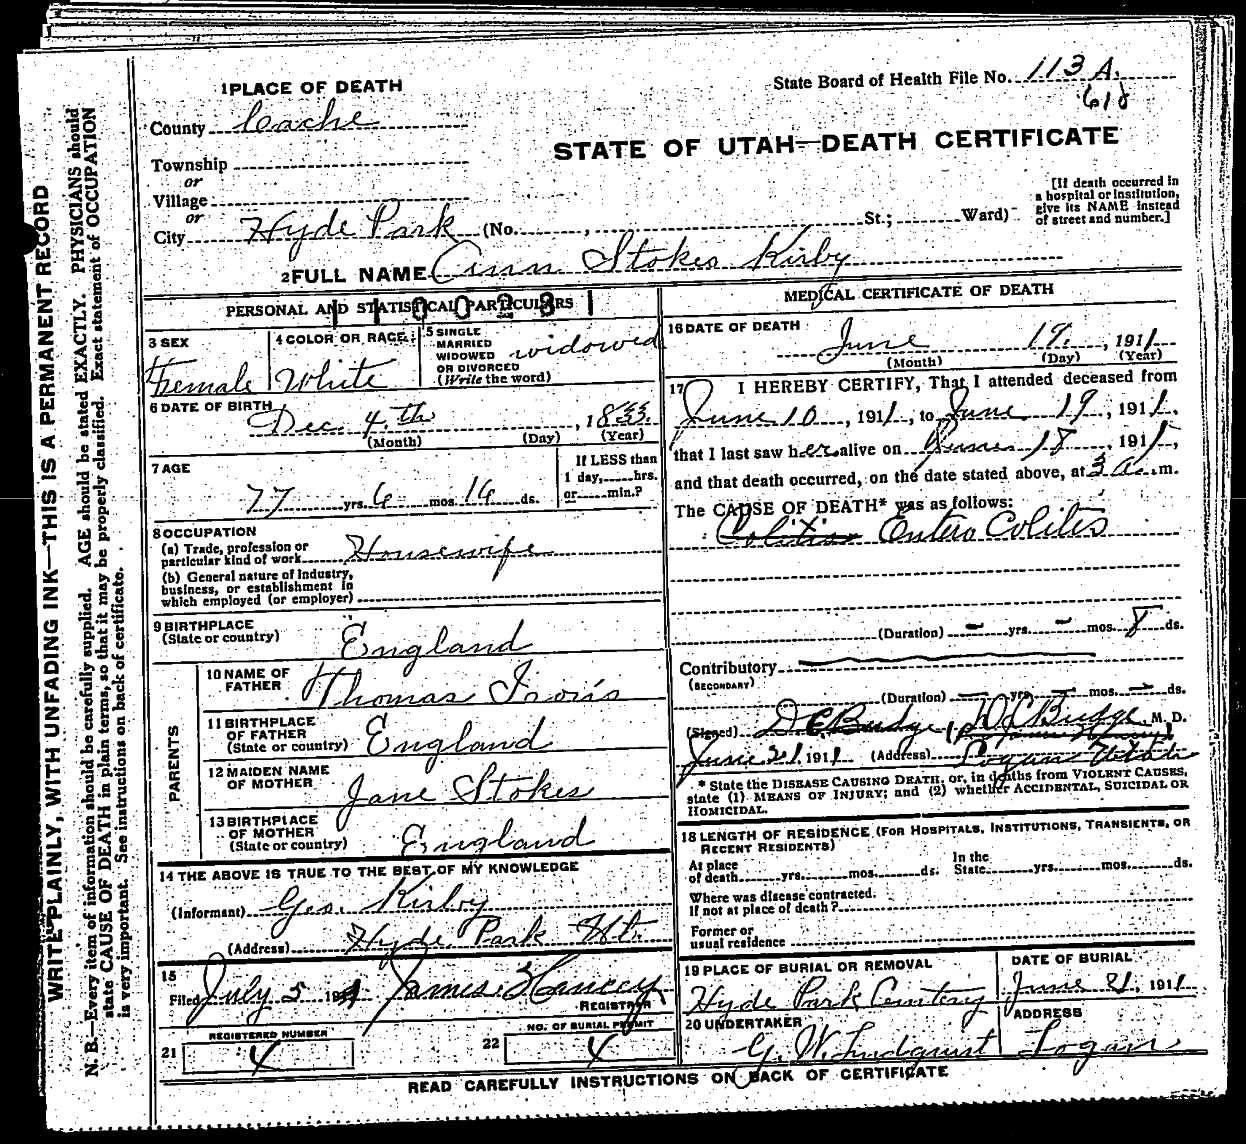 State Board of Health File No. 113 A.
618
1 PLACE OF DEATH
County Cache
STATE OF UTAH—DEATH CERTIFICATE
Township
or
Village
or
City Hyde Park (No. , St.; Ward)
[If death occurred in
a hospital or institution,
give its NAME instead
of street and number.]
2 FULL NAME Ann Stokes Kirby
PERSONAL AND STATISTICAL PARTICULARS
3 SEX
Female
4 COLOR OR RACE
White
5 SINGLE
MARRIED
WIDOWED
OR DIVORCED
(Write the word)
widowed
6 DATE OF BIRTH
Dec. 4th, 1833.
(Month) (Day) (Year)
7 AGE
77 yrs. 6 mos. 14 ds.
If LESS than
1 day, hrs.
or min.?
8 OCCUPATION
(a) Trade, profession or
particular kind of work Housewife
(b) General nature of Industry,
business, or establishment in
which employed (or employer)
9 BIRTHPLACE
(State or country) England
PARENTS
10 NAME OF
FATHER Thomas
11 BIRTHPLACE
OF FATHER
(State or country) England
12 MAIDEN NAME
OF MOTHER Jane Stokes
13 BIRTHPLACE
OF MOTHER
(State or country) England
14 THE ABOVE IS TRUE TO THE BEST OF MY KNOWLEDGE
(Informant) Geo. Kirby
(Address) Hyde Park Ut.
15
Filed July 5 191 James Hancey
REGISTRAR
REGISTERED NUMBER
21 4
NO. OF BURIAL PERMIT
22 4
MEDICAL CERTIFICATE OF DEATH
16 DATE OF DEATH
June 19, 1911
(Month) (Day) (Year)
17 I HEREBY CERTIFY, That I attended deceased from
June 10, 1911, to June 19, 1911,
that I last saw her alive on June 18, 1911,
and that death occurred, on the date stated above, at 3 a. m.
The CAUSE OF DEATH* was as follows:
Colitis Entero Colitis
(Duration) - yrs. - mos. 8 ds.
Contributory
(SECONDARY)
(Duration) - yrs. - mos. - ds.
(Signed) D C Budge D C Budge M. D.
June 21, 1911 (Address) Logan Utah
* State the DISEASE CAUSING DEATH, or, in deaths from VIOLENT CAUSES,
state (1) MEANS OF INJURY; and (2) whether ACCIDENTAL, SUICIDAL OR
HOMICIDAL.
18 LENGTH OF RESIDENCE (FOR HOSPITALS, INSTITUTIONS, TRANSIENTS, OR
RECENT RESIDENTS)
At place
of death yrs. mos. ds.
In the
State yrs. mos. ds.
Where was disease contracted.
If not at place of death?
Former or
usual residence
19 PLACE OF BURIAL OR REMOVAL
Hyde Park Cemtery
DATE OF BURIAL
June 21, 1911
20 UNDERTAKER
G. W. Lindquist
ADDRESS
Logan
READ CAREFULLY INSTRUCTIONS ON BACK OF CERTIFICATE
WRITE PLAINLY, WITH UNFADING INK—THIS IS A PERMANENT RECORD
N. B.—Every item of information should be carefully supplied. AGE should be stated EXACTLY. PHYSICIANS should
state CAUSE OF DEATH in plain terms, so that it may be properly classified. Exact statement of OCCUPATION
is very important. See instructions on back of certificate.